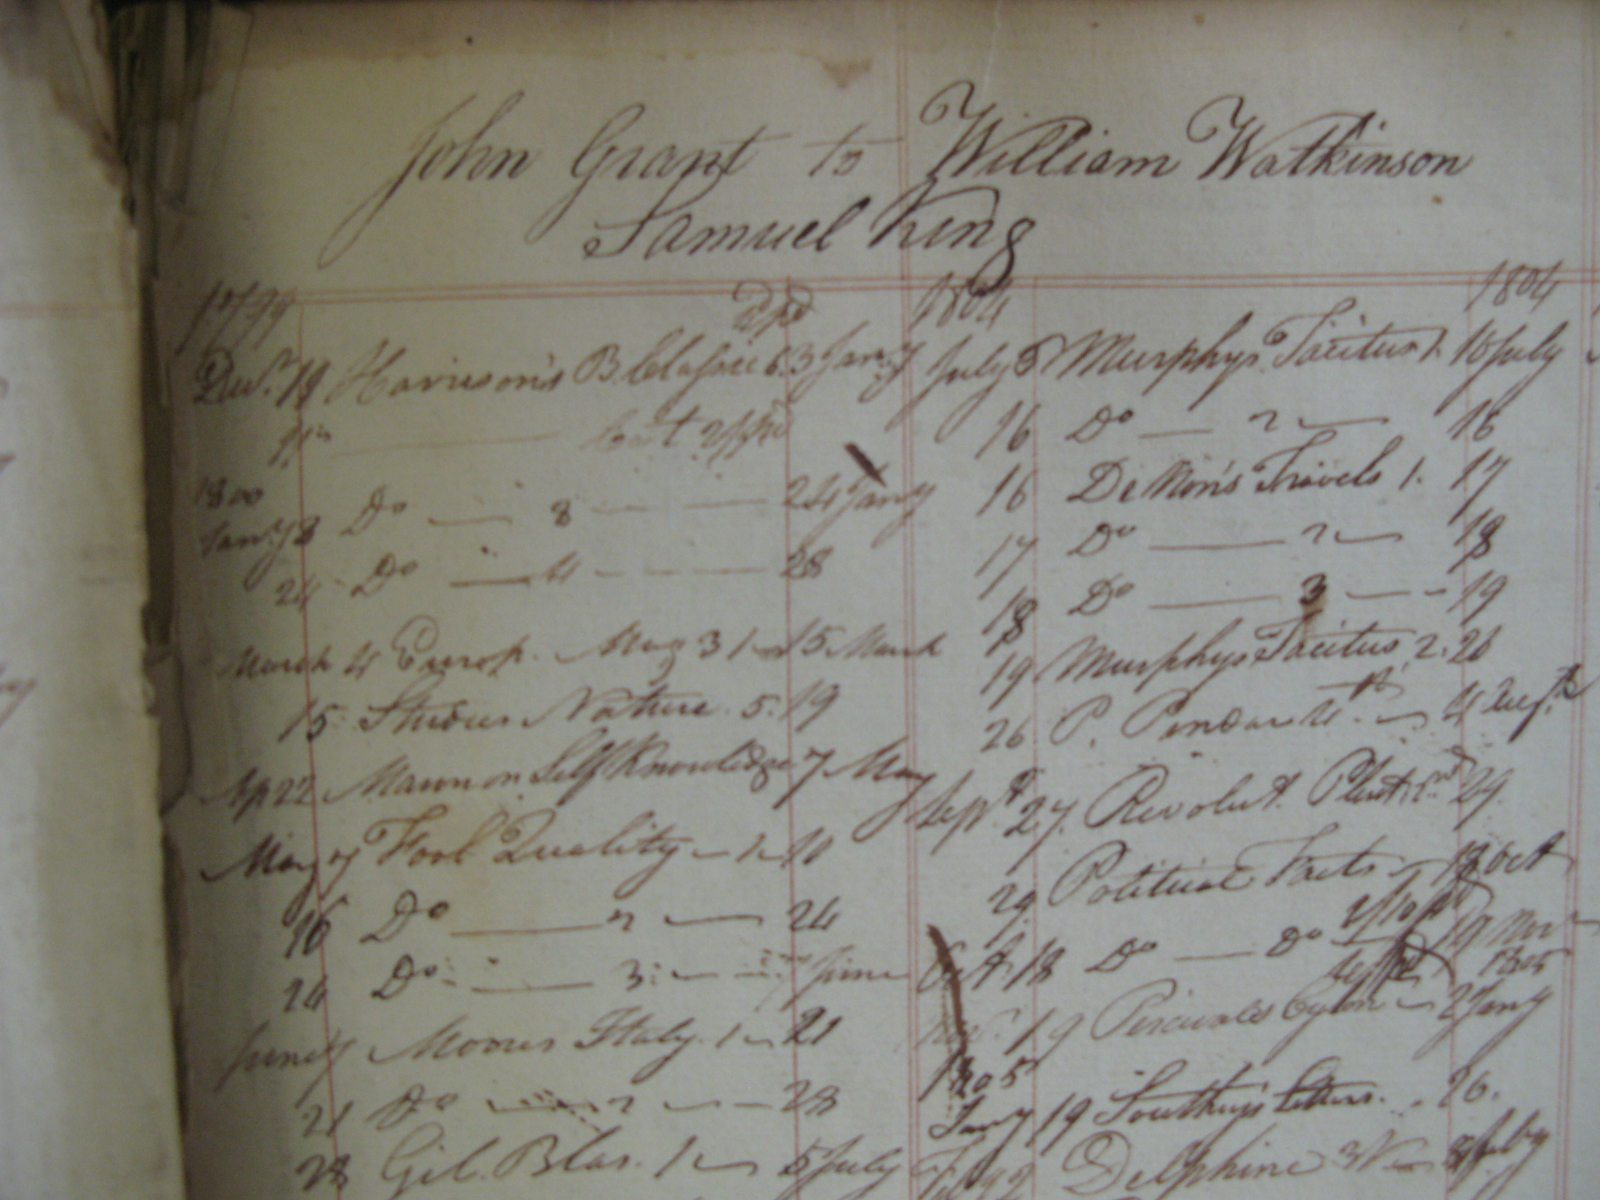 John Grant to William Watkinson
Samuel King
1799
Decr. 19 Harrison's B. Classics 6. 3 Jany
1800
Jany 8 Do — 8 — 24 Jany
24 Do — 4 — 28
March 4 Europ. Mag 31 — 15 March
15 Studies Nature. 5. 19
Ap 22 Mason on Self Knowledge 7 May
May 7 Fool Quality — 1 —
16 Do — 2 — 24
24 Do — 3 — June
June 7 Moores Italy. 1 — 21
21 Do — 2 — 28
28 Gil Blas. 1 — 5 July
1804 1804
July 5 Murphys Tacitus 1. 16 July
16 Do — 2 — 16
16 De Non's Travels 1. 17
17 Do — 2 — 18
18 Do — 3 — 19
19 Murphys Tacitus, 2. 26
26 P. Pindar 4th. — 4 Augt.
Sept. 27. Revolut. Plutarch 29.
29 Political — Oct
Oct. 18 Do — Do 19 Nov
1805
Nov. 19 Percivals Cylon — 2 Jany
1805
Jany 19 Southey's Letters. 26.
Delphine